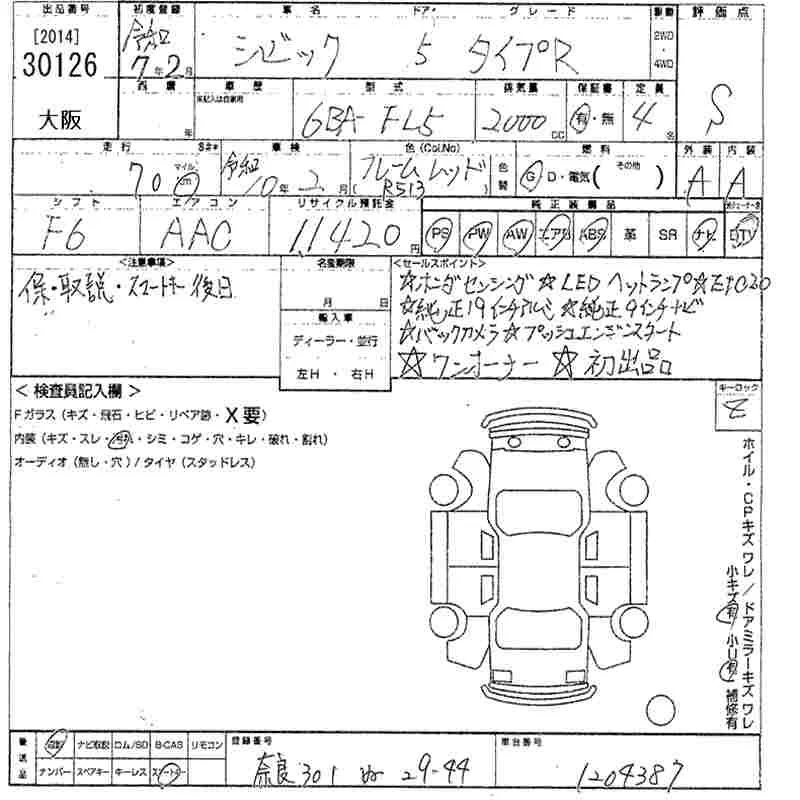 出品番号 初度登録 車名 ドア・ グレード 駆動 評価点
[2014] 令和 シビック 5 タイプR 2WD
30126 7年2月 ・ 4WD S
大阪 車歴 型式 排気量 保証書 定員
年 未記入は自家用 6BA-FL5 2000cc 有・無 4名
走行 車検 色(Col.No) 燃料 外装 内装
70 マイル km 令和10年2月 フレームレッド (R513) 色替 G D・電気( その他 ) A A
シフト エアコン リサイクル預託金 純正装備品
F6 AAC 11420円 PS PW AW エアB ABS 革 SR ナビ TV
<注意事項> 名変期限 <セールスポイント>
保・取説・スマートキー後日 月 日 ☆ホンダセンシング☆LEDヘットランプ☆ETC2.0
☆純正19インチアルミ☆純正9インチナビ
輸入車 ☆バックカメラ☆プッシュエンジンスタート
ディーラー・並行 ☆ワンオーナー☆初出品
左H・右H
<検査員記入欄> キーロック
Fガラス(キズ・飛石・ヒビ・リペア跡・X要)
内装(キズ・スレ・・シミ・コゲ・穴・キレ・破れ・割れ)
オーディオ(無し・穴)/タイヤ(スタッドレス)
ホイル・CPキズワレ/ドアミラーキズワレ
小キズ有 小U有 補修有
後送品 ナビ取説 ロム/SD B-CAS リモコン 登録番号 車台番号
ナンバー スペアキー キーレス スマートキー 奈良 301 ぬ 29-44 1204387